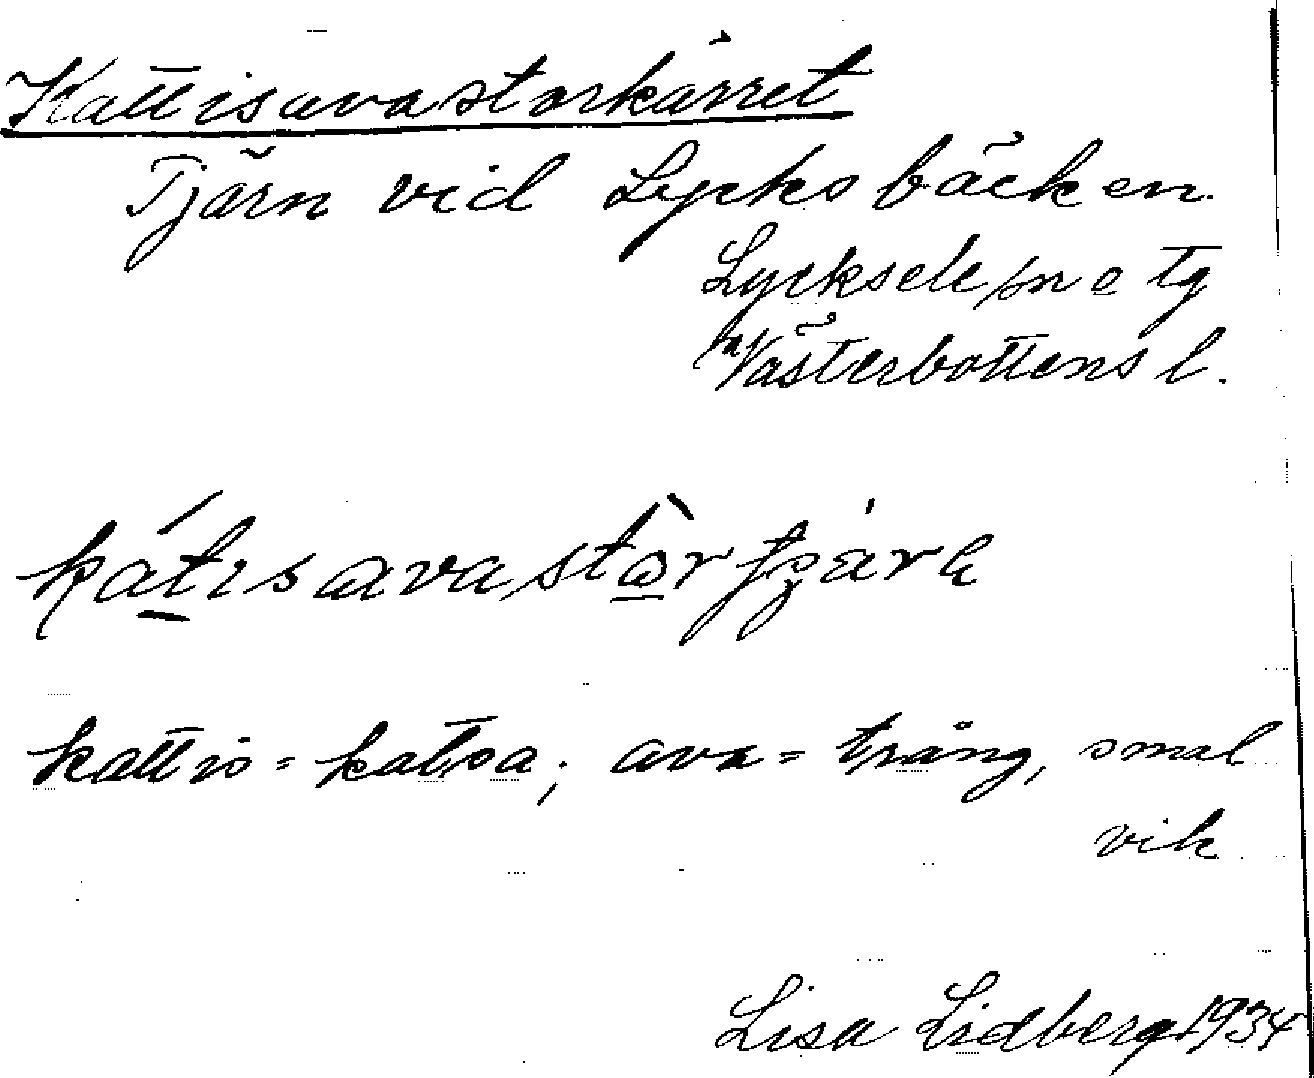 Kattisavastorkärret
Tjärn vid Lycksbäcken.
Lycksele sn o tg
Västerbottens l.
kátisavastòrtjärn
kattis = katsa; ava = trång, smal
vik
Lisa Lidberg 1934